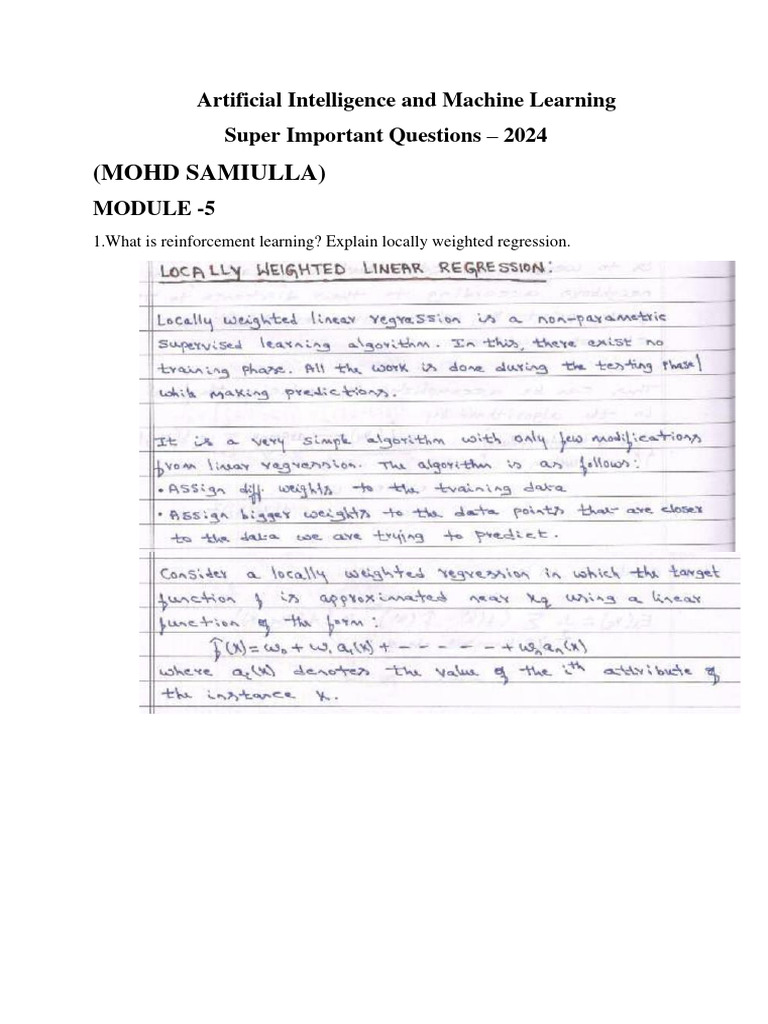 Artificial Intelligence and Machine Learning
Super Important Questions – 2024
(MOHD SAMIULLA)
MODULE -5
1.What is reinforcement learning? Explain locally weighted regression.
LOCALLY WEIGHTED LINEAR REGRESSION:
Locally weighted linear regression is a non-parametric
supervised learning algorithm. In this, there exist no
training phase. All the work is done during the testing phase/
while making predictions.
It is a very simple algorithm with only few modifications
from linear regression. The algorithm is as follows:
• Assign diff. weights to the training data
• Assign bigger weights to the data points that are closer
to the data we are trying to predict.
Consider a locally weighted regression in which the target
function f is approximated near xq using a linear
function of the form:
f̂(x) = w₀ + w₁a₁(x) + - - - - - - + wₙaₙ(x)
where aᵢ(x) denotes the value of the iᵗʰ attribute of
the instance x.